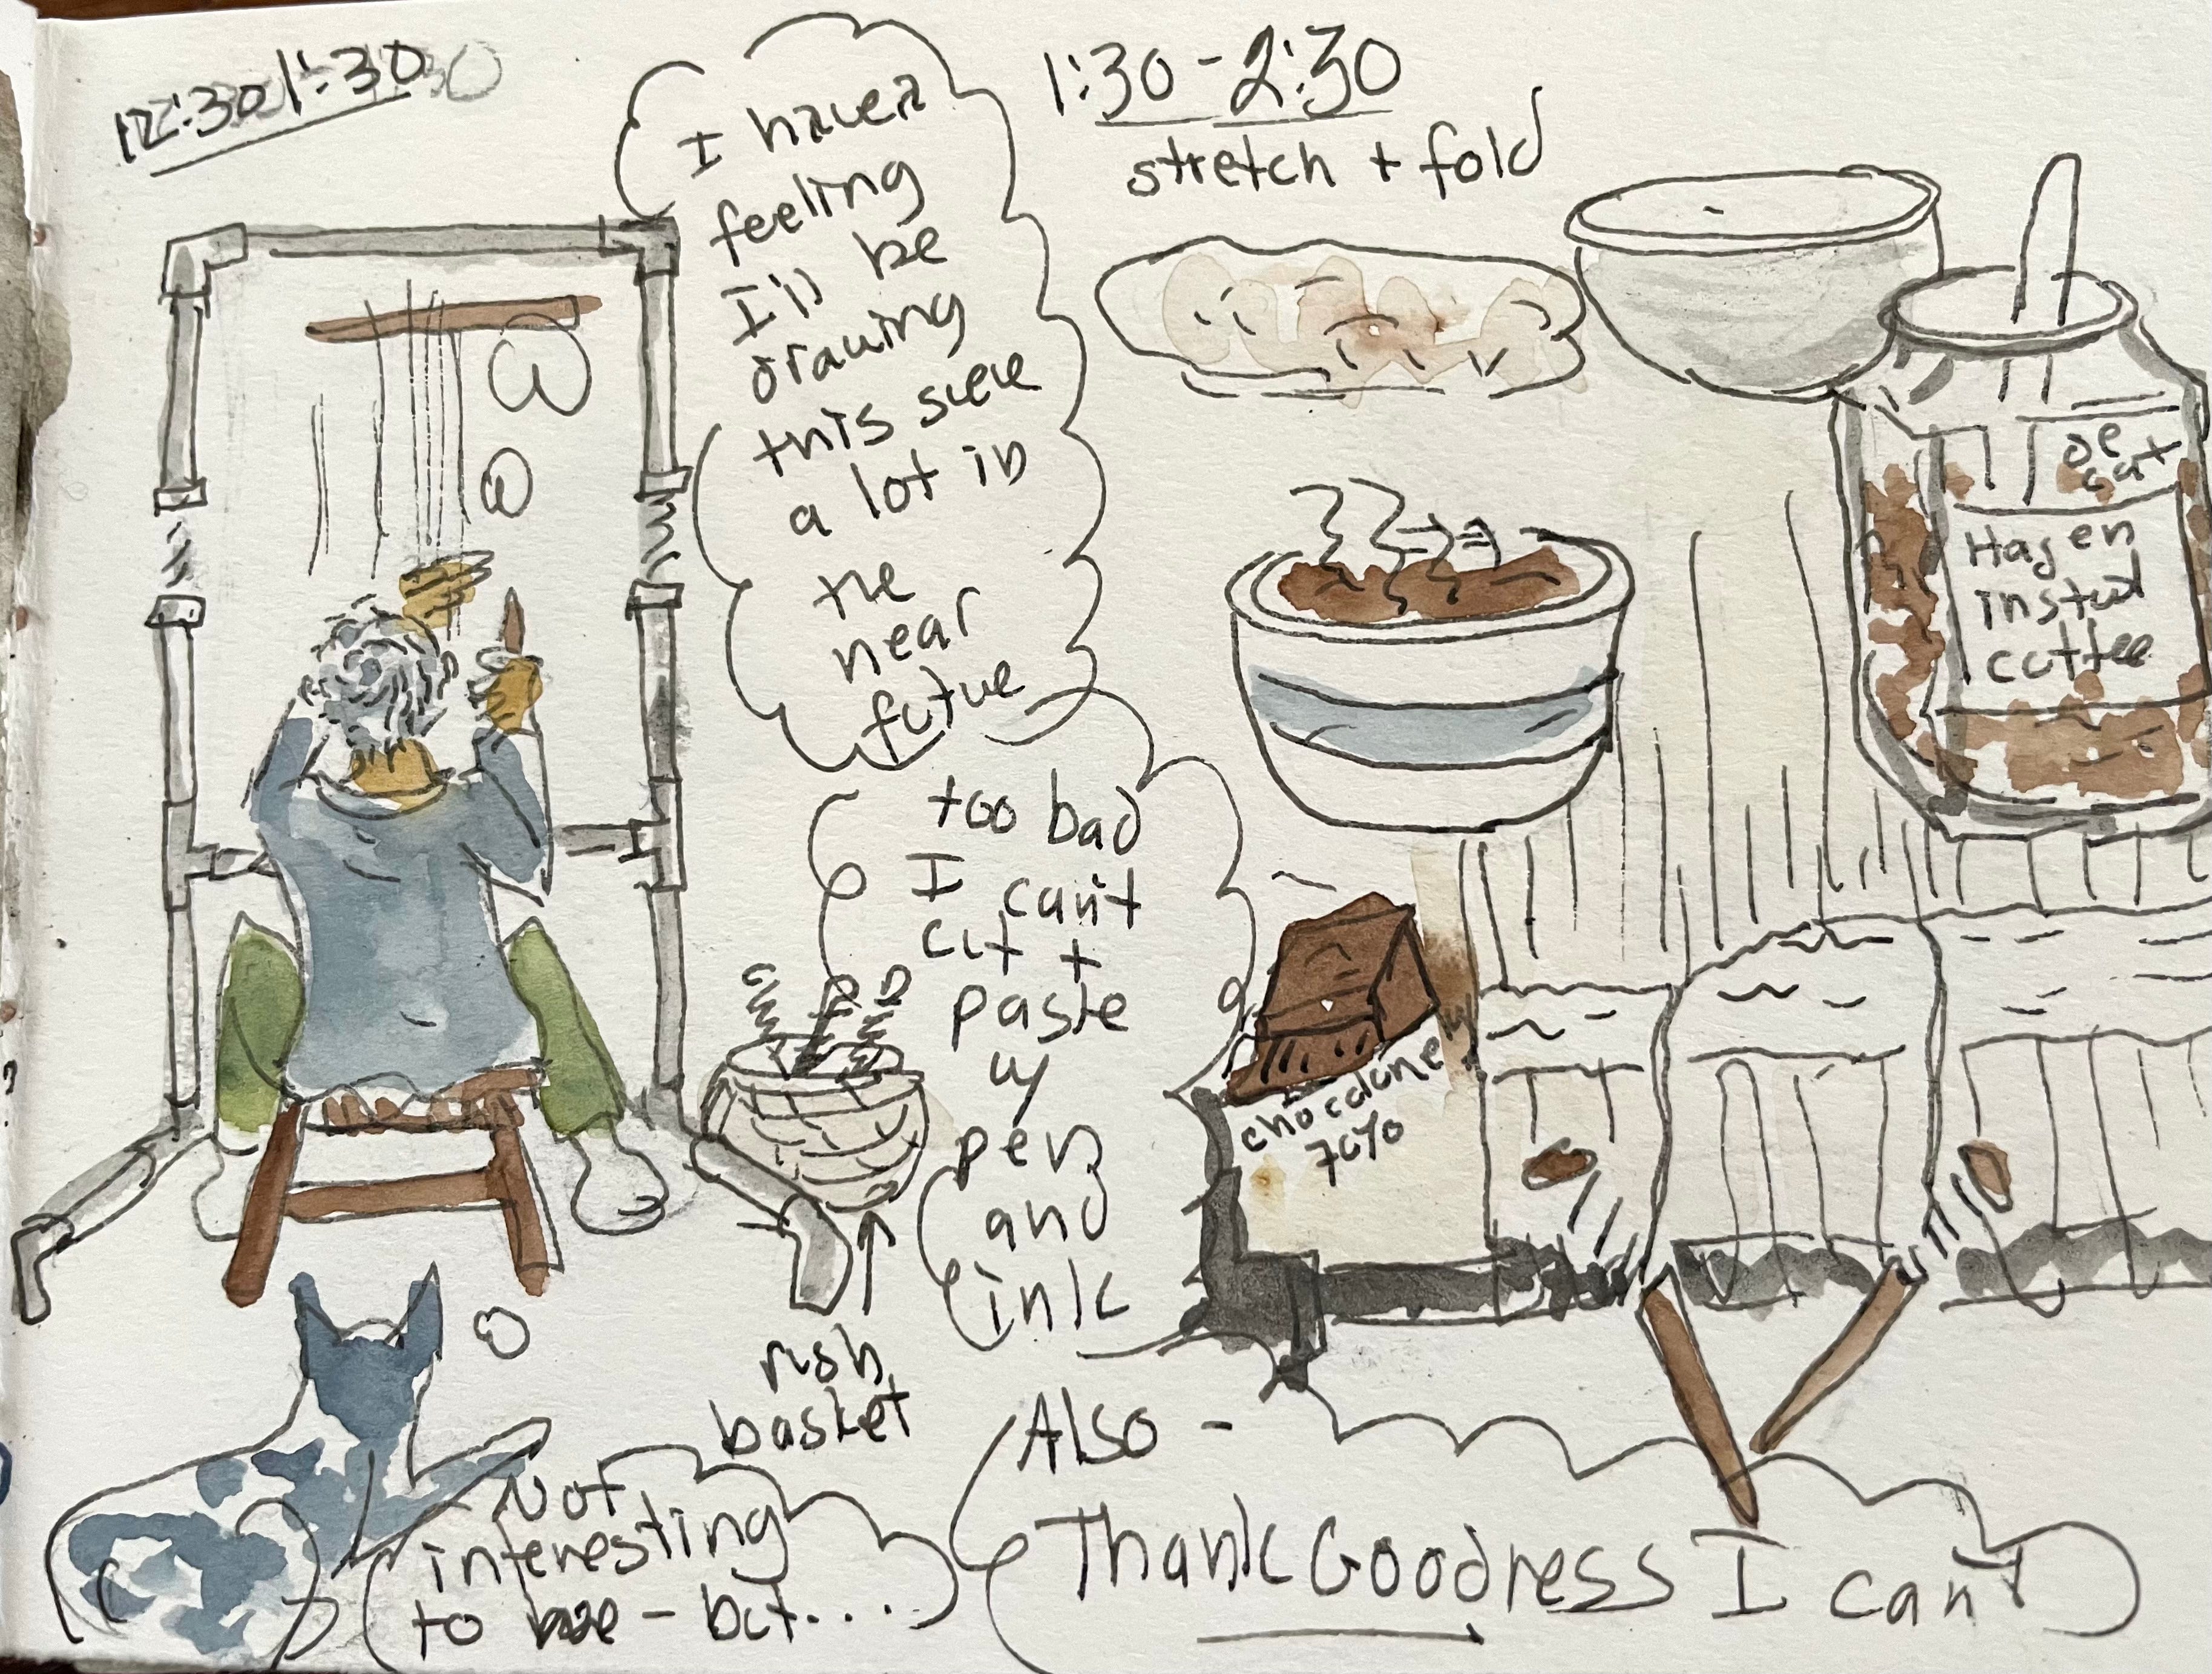 12:30 1:30
I have a
feeling
I'll be
drawing
this scene
a lot in
the
near
future
too bad
I can't
cut +
paste
w/
pen
and
ink
Also -
Thank Goodness I can't
rush
basket
Not
interesting
to me - but...
1:30 - 2:30
stretch + fold
De
caf
Hagen
instant
coffee
70%